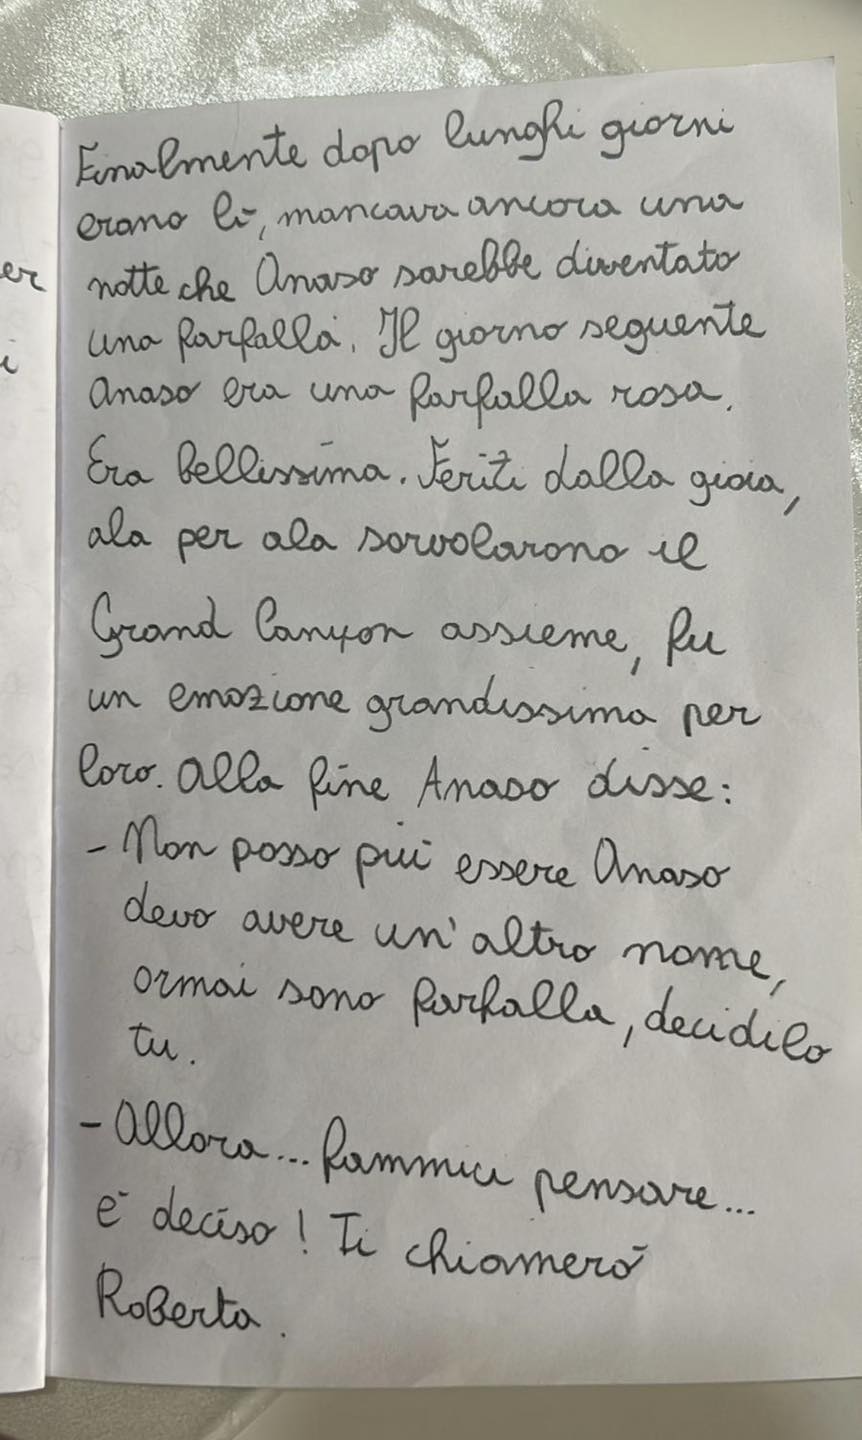 er
i
Finalmente dopo lunghi giorni
erano lì, mancava ancora una
notte che Anaso sarebbe diventato
una farfalla. Il giorno seguente
Anaso era una farfalla rosa.
Era bellissima. Feriti dalla gioia,
ala per ala sorvolarono il
Grand Canyon assieme, fu
un emozione grandissima per
loro. Alla fine Anaso disse:
- Non posso più essere Anaso
devo avere un'altro nome,
ormai sono farfalla, decidilo
tu.
- Allora... fammici pensare...
è deciso! Ti chiamerò
Roberta.